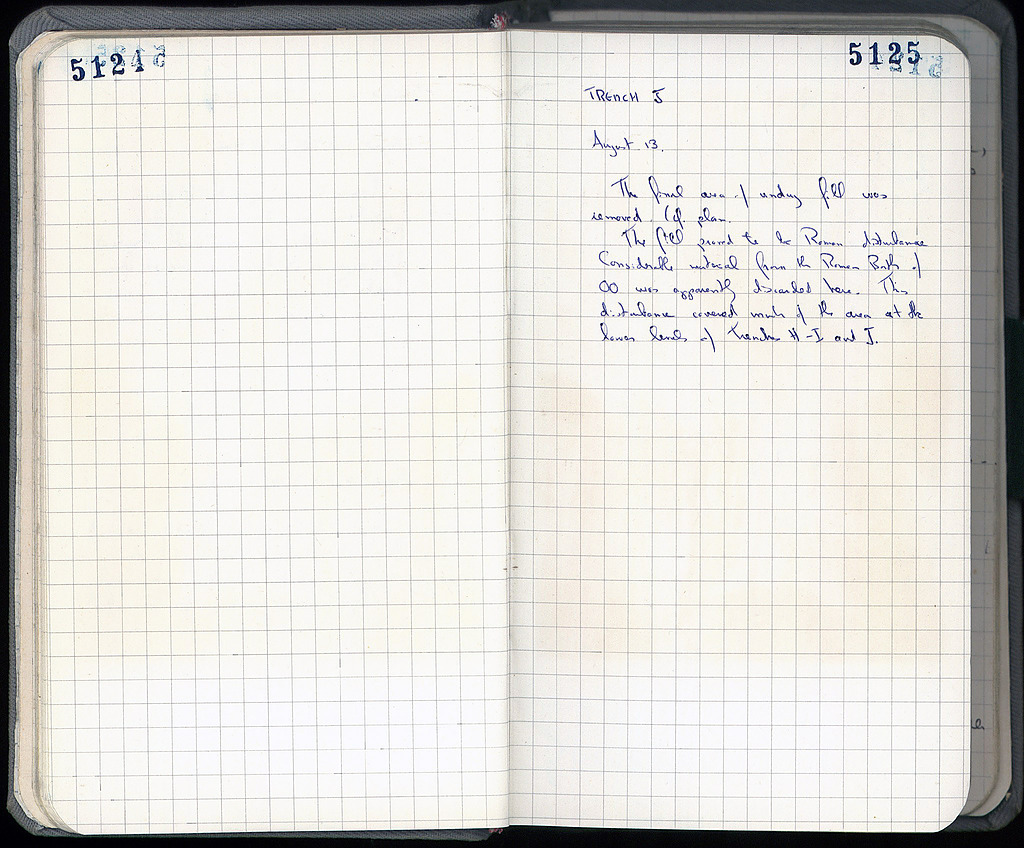 5124
5125
TRENCH J
August 13.
The final area of sandy fill was
removed. Cf. plan.
The fill proved to be Roman disturbance
Considerable material from the Roman Bath of
OO was apparently discarded here. This
disturbance covered much of the area at the
lower levels of Trenches H-I and J.